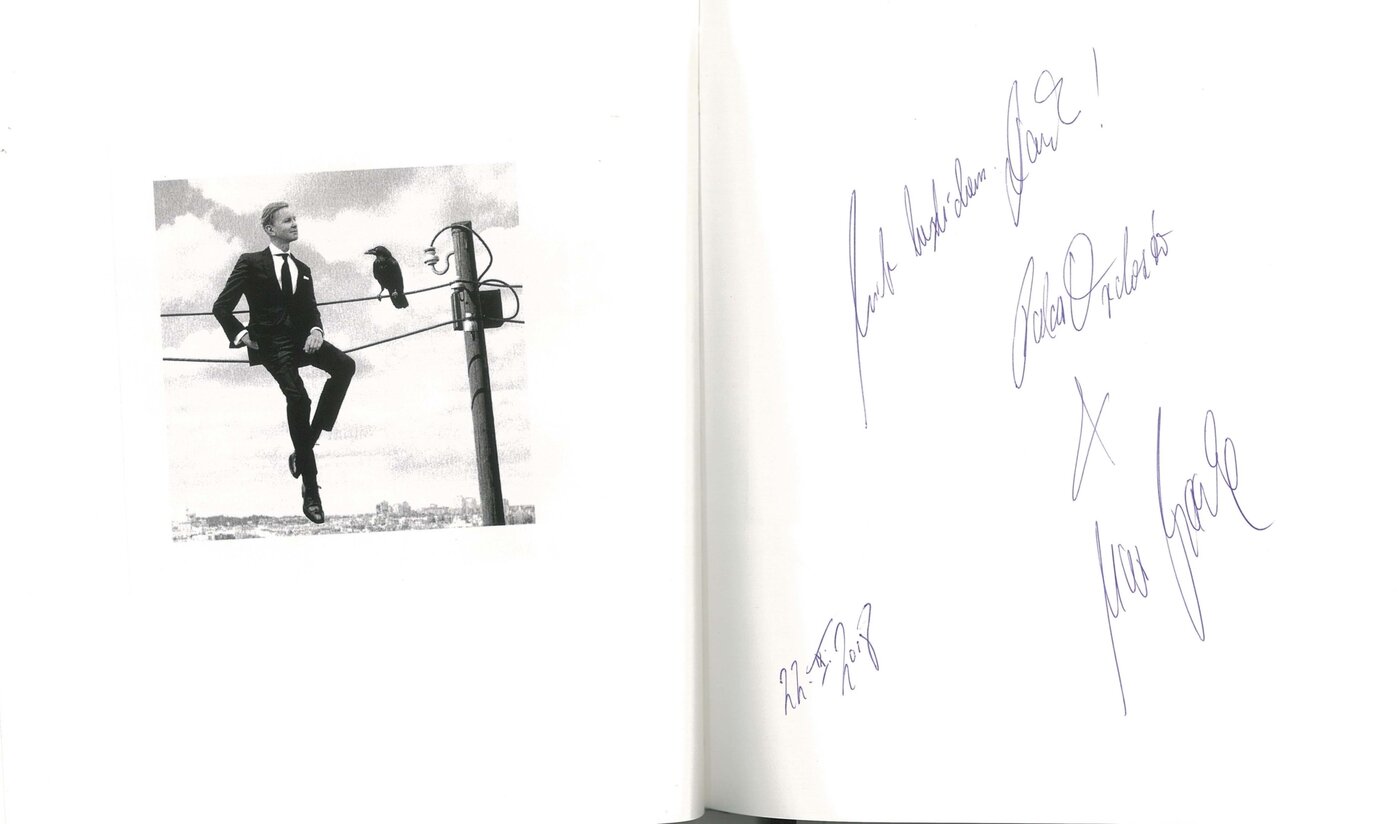 Mit herzlichem Dank!
Palast Orchester
&
Max Raabe
22.